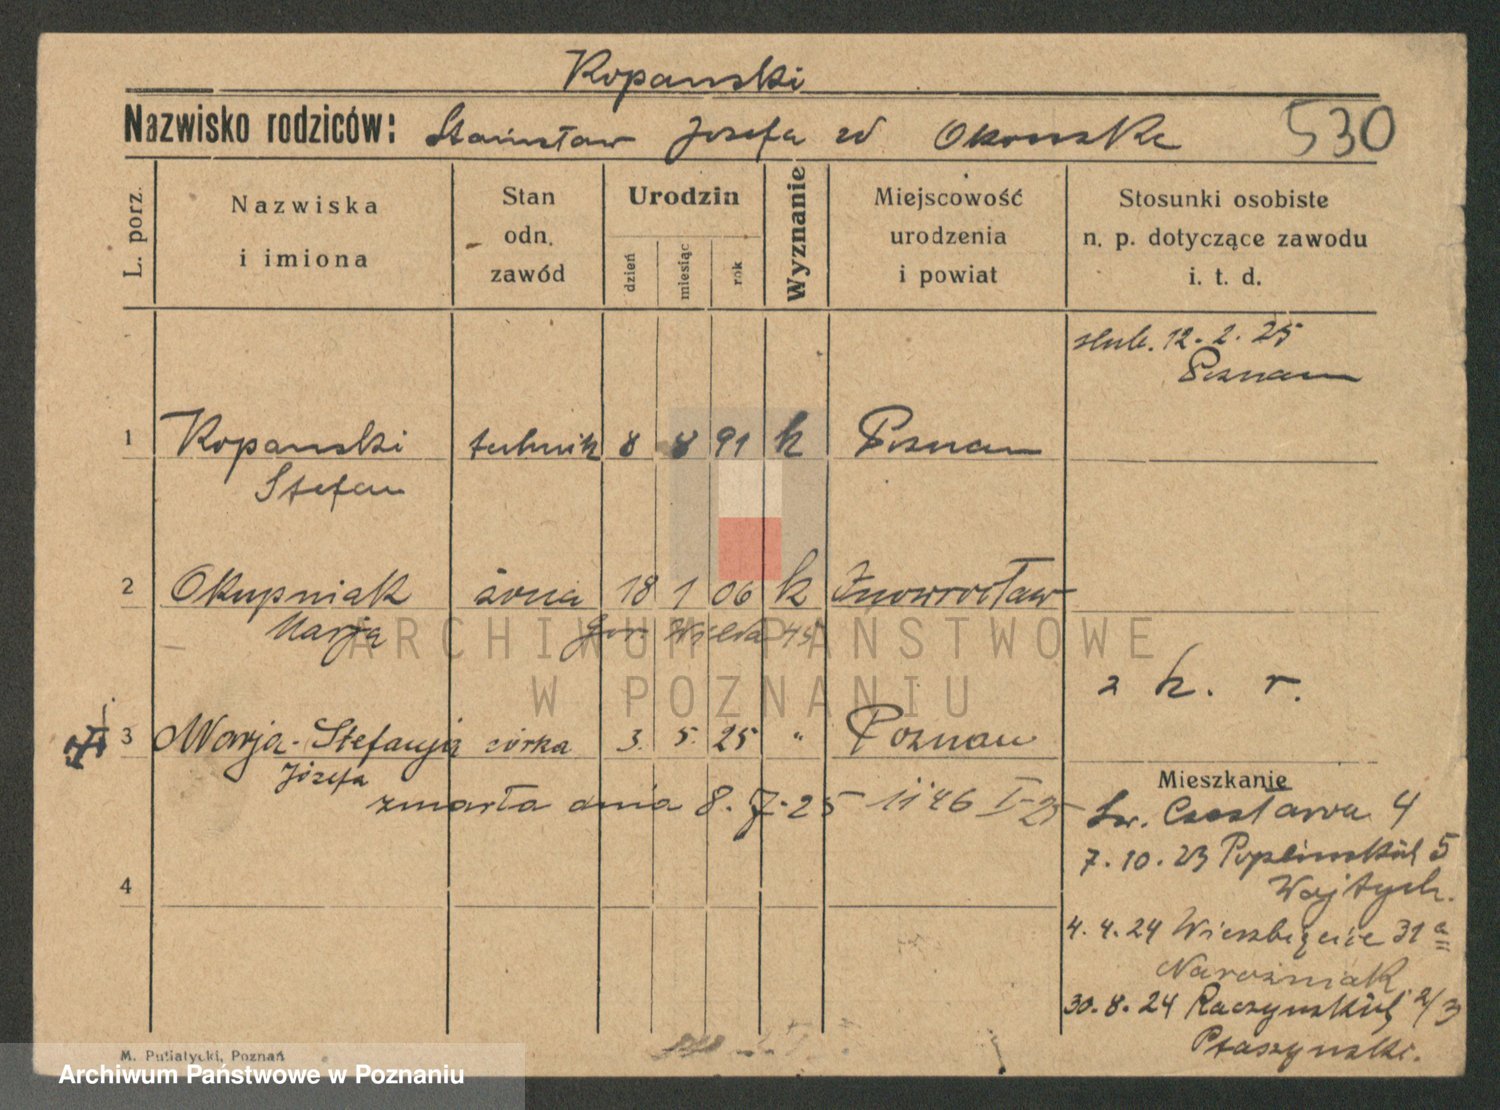 Kopanski
Nazwisko rodziców: Stanisław Józefa zd
530
L. porz.
Nazwiska
i imiona
Stan
odn.
zawód
Urodzin
dzień
miesiąc
rok
Wyznanie
Miejscowość
urodzenia
i powiat
Stosunki osobiste
n. p. dotyczące zawodu
i. t. d.
slub. 12. 2. 25
Poznan
1 Kopanski technik 8 8 91 k Poznan
Stefan
2 Okupniak żona 18 1 06 k Inowrocław
Marja Gór. Wilda 45
z k. r.
3 Marja-Stefanja córka 3. 5. 25 " Poznan
Józefa
zmarła dnia 8. 7. 25 1146 I-25
Mieszkanie
Św. Czesława 4
7. 10. 23 Poplinskich 5
Wojtych.
4
4. 4. 24 Wierzbięcice 31a
Narożniak
30. 8. 24 Raczynskich 2/3
Ptaszynski.
M. Putiatycki, Poznań
ARCHIWUM PAŃSTWOWE
W POZNANIU
Archiwum Państwowe w Poznaniu